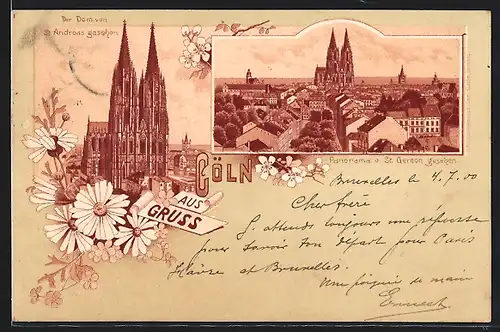 Der Dom von
St Andreas gesehen
Panorama v. St. Gereon gesehen
CÖLN
AUS
GRUSS
Bruxelles le 4.7.00
Cher frère
J. attends toujours une réponse
pour savoir ton départ pour Paris
et Bruxelles.
Une poignée de main
Ernest